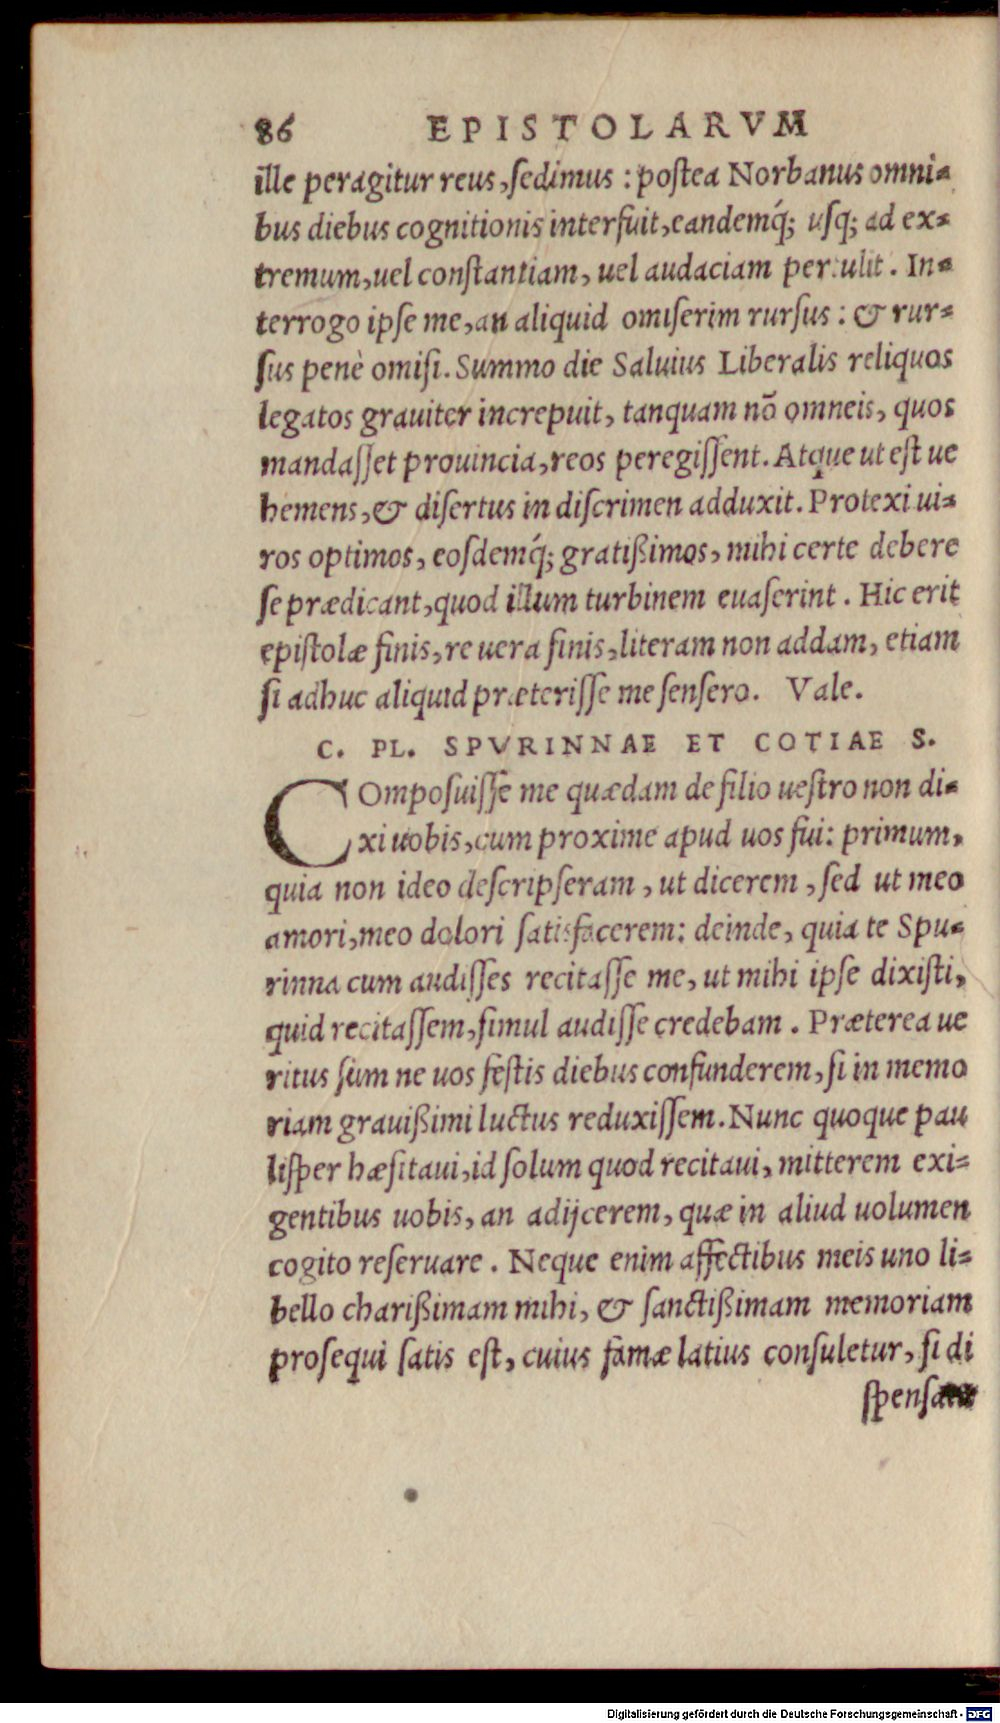 86 EPISTOLARVM
ille peragitur reus, sedimus: postea Norbanus omni=
bus diebus cognitionis interfuit, eandemq́; usq; ad ex=
tremum, uel constantiam, uel audaciam pertulit. In=
terrogo ipse me, an aliquid omiserim rursus: & rur=
sus penè omisi. Summo die Saluius Liberalis reliquos
legatos grauiter increpuit, tanquam nō omneis, quos
mandasset prouincia, reos peregissent. Atque ut est ue
hemens, & disertus in discrimen adduxit. Protexi ui=
ros optimos, eosdemq́; gratißimos, mihi certe debere
se prædicant, quod illum turbinem euaserint. Hic erit
epistolæ finis, re uera finis, literam non addam, etiam
si adhuc aliquid præterisse me sensero. Vale.
C. PL. SPVRINNAE ET COTIAE S.
COmposuisse me quædam de filio uestro non di=
xi uobis, cum proxime apud uos fui: primum,
quia non ideo descripseram, ut dicerem, sed ut meo
amori, meo dolori satisfacerem: deinde, quia te Spu=
rinna cum audisses recitasse me, ut mihi ipse dixisti,
quid recitassem, simul audisse credebam. Præterea ue
ritus sum ne uos festis diebus confunderem, si in memo
riam grauißimi luctus reduxissem. Nunc quoque pau
lisper hæsitaui, id solum quod recitaui, mitterem exi=
gentibus uobis, an adijcerem, quæ in aliud uolumen
cogito reseruare. Neque enim affectibus meis uno li=
bello charißimam mihi, & sanctißimam memoriam
prosequi satis est, cuius famæ latius consuletur, si di
spensa
Digitalisierung gefördert durch die Deutsche Forschungsgemeinschaft - DFG